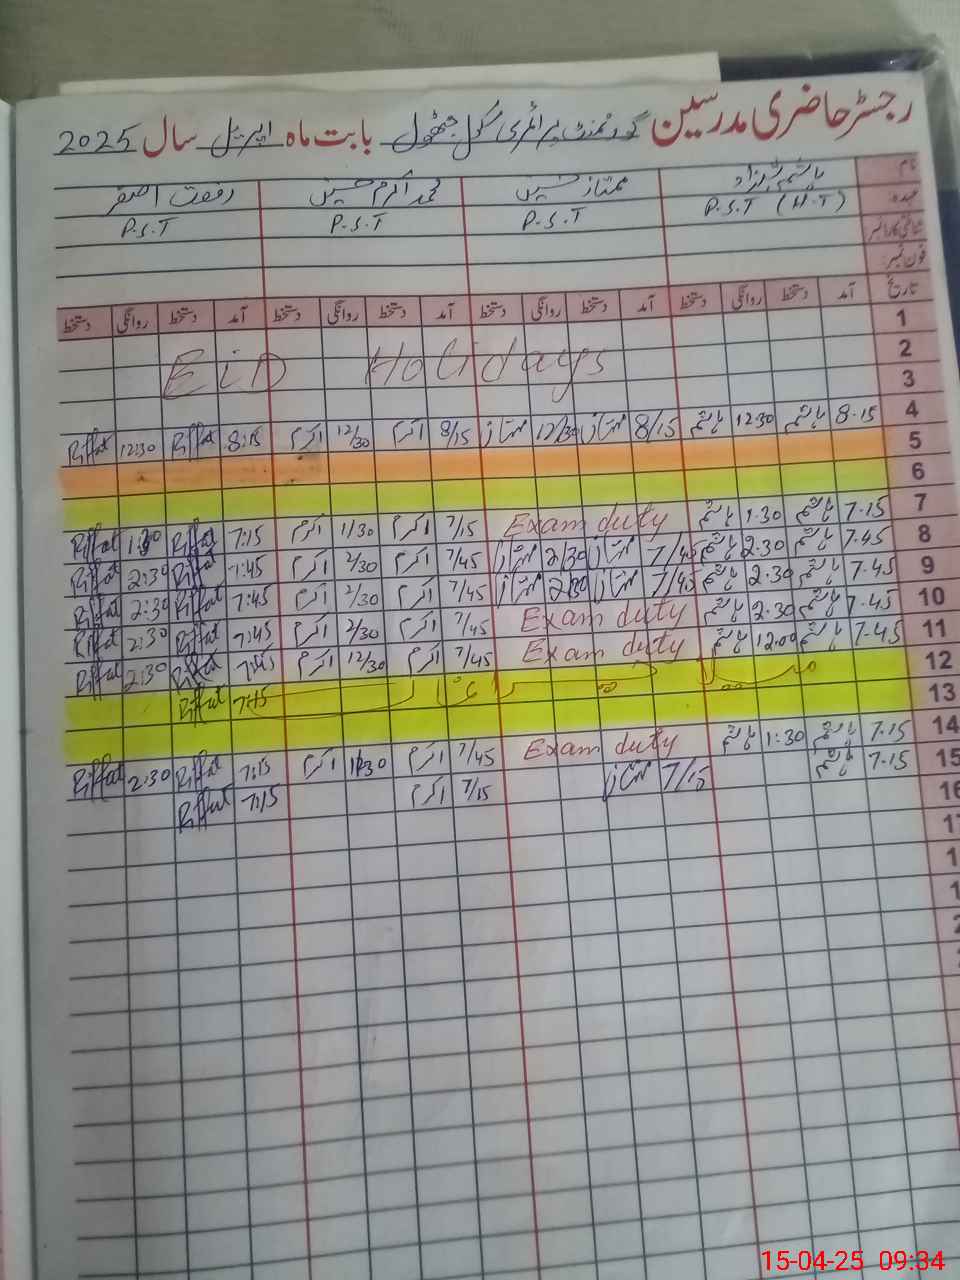 رجسٹر حاضری مدرسین گورنمنٹ پرائمری سکول جھٹول بابت ماہ اپریل سال 2025
نام ہاشم شہزاد ممتاز حسین محمد اکرم حسین رفعت اصغر
عہدہ P.S.T (H.T) P.S.T P.S.T P.S.T
شناختی کارڈ نمبر
فون نمبر:
تاریخ آمد دستخط روانگی دستخط آمد دستخط روانگی دستخط آمد دستخط روانگی دستخط آمد دستخط روانگی دستخط
1
2 EiD Holidays
3
4 8.15 ہاشم 12.30 ہاشم 8/15 ممتاز 12/30 ممتاز 8/15 اکرم 12/30 اکرم 8:15 Riffat 12:30 Riffat
5
6
7 7.15 ہاشم 1.30 ہاشم Exam duty 7/15 اکرم 1/30 اکرم 7:15 Riffat 1:30 Riffat
8 7.45 ہاشم 2.30 ہاشم 7/45 ممتاز 2/30 ممتاز 7/45 اکرم 2/30 اکرم 7:45 Riffat 2:30 Riffat
9 7.45 ہاشم 2.30 ہاشم 7/45 ممتاز 2/30 ممتاز 7/45 اکرم 2/30 اکرم 7:45 Riffat 2:30 Riffat
10 7.45 ہاشم 2.30 ہاشم Exam duty 7/45 اکرم 2/30 اکرم 7:45 Riffat 2:30 Riffat
11 7.45 ہاشم 12.00 ہاشم Exam duty 7/45 اکرم 12/30 اکرم 7:45 Riffat 2:30 Riffat
12 7:15 Riffat
13
14 7.15 ہاشم 1:30 ہاشم Exam duty 7/45 اکرم 1/30 اکرم 7:15 Riffat 2:30 Riffat
15 7.15 ہاشم 7/15 ممتاز 7/15 اکرم 7:15 Riffat
16
15-04-25 09:34